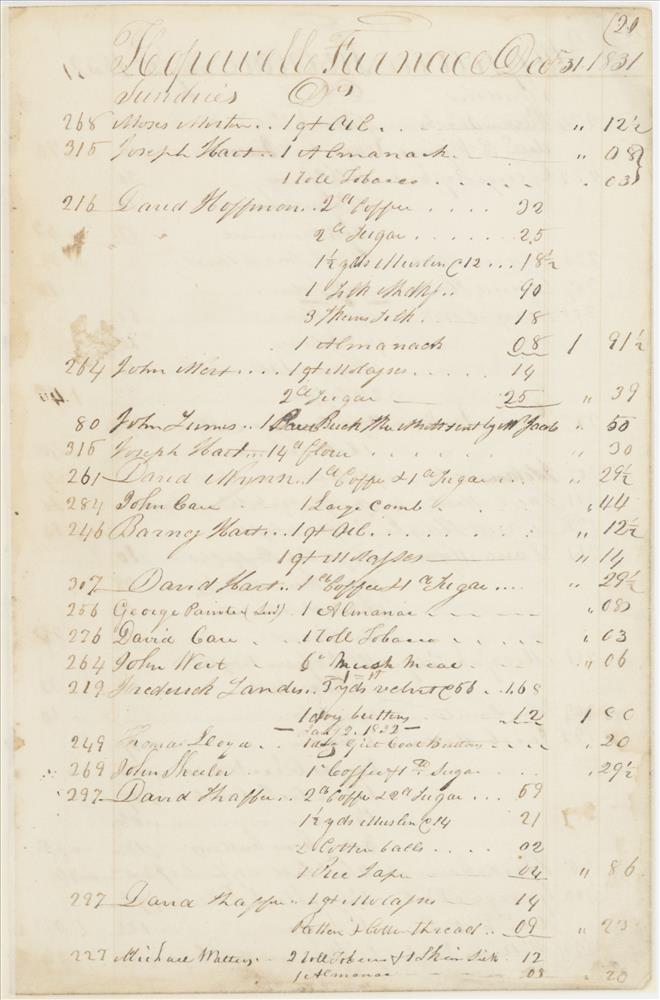 (20
Hopewell Furnace Decr 31 1831
Sundries Drs
268 Moses Morton .. 1 qt Oil . . " 12½
315 Joseph Hart .. 1 Almanack . " 08
1 Roll Tobacco . . . . . . 03
216 David Hoffman .. 2 lb Coffee . . . . 32
2 lb Sugar . . . . . . 25
1½ yds Muslin @ 12 ... 18½
1 Silk Hdkf .. 90
3 Skeins Silk . 18
1 Almanack 08 1 91½
264 John .... 1 qt Molasses . . . . 14
2 lb Sugar 25 " 39
80 John .. 1 Pair Buck by Jacob " 50
315 Joseph Hart ... 14 lb flour . . . . . . " 30
261 David .. 1 lb Coffee & 1 lb Sugar ... " 29½
284 John Care . 1 Large Comb . . " 44
246 Barney Hart .. 1 qt Oil . . . . . . . " 12½
1 qt Molasses " 14
307 David Hart .. 1 lb Coffee & 1 lb Sugar .... " 29½
256 George Painter 1 Almanac - - - - - " 08
276 David Care . 1 Roll Tobacco . . . . . " 03
264 John . 6 lb Mush Meal . . . . " 06
219 Frederick Landis .. 3 yds velvet @ 56 . 1.68
1 doz buttons 12 1 80
— Jany 2. 1832 —
249 Thomas Lloyd . . 1 doz Coat Buttons - - - - " 20
269 John Sheeler 1 lb Coffee & 1 lb Sugar . . . " 29½
297 David Shaffer .. 2 lb Coffee & 2 lb Sugar ... 59
1½ yds Muslin @ 14 21
2 Cotton balls . . . . 02
1 Piece Tape — 04 " 86
297 David Shaffer .. 1 qt Molasses 14
& Cotton thread .. 09 " 23
227 Michael Watters . 2 Roll Tobacco & 1 Skein Silk 12
1 Almanac 08 " 20